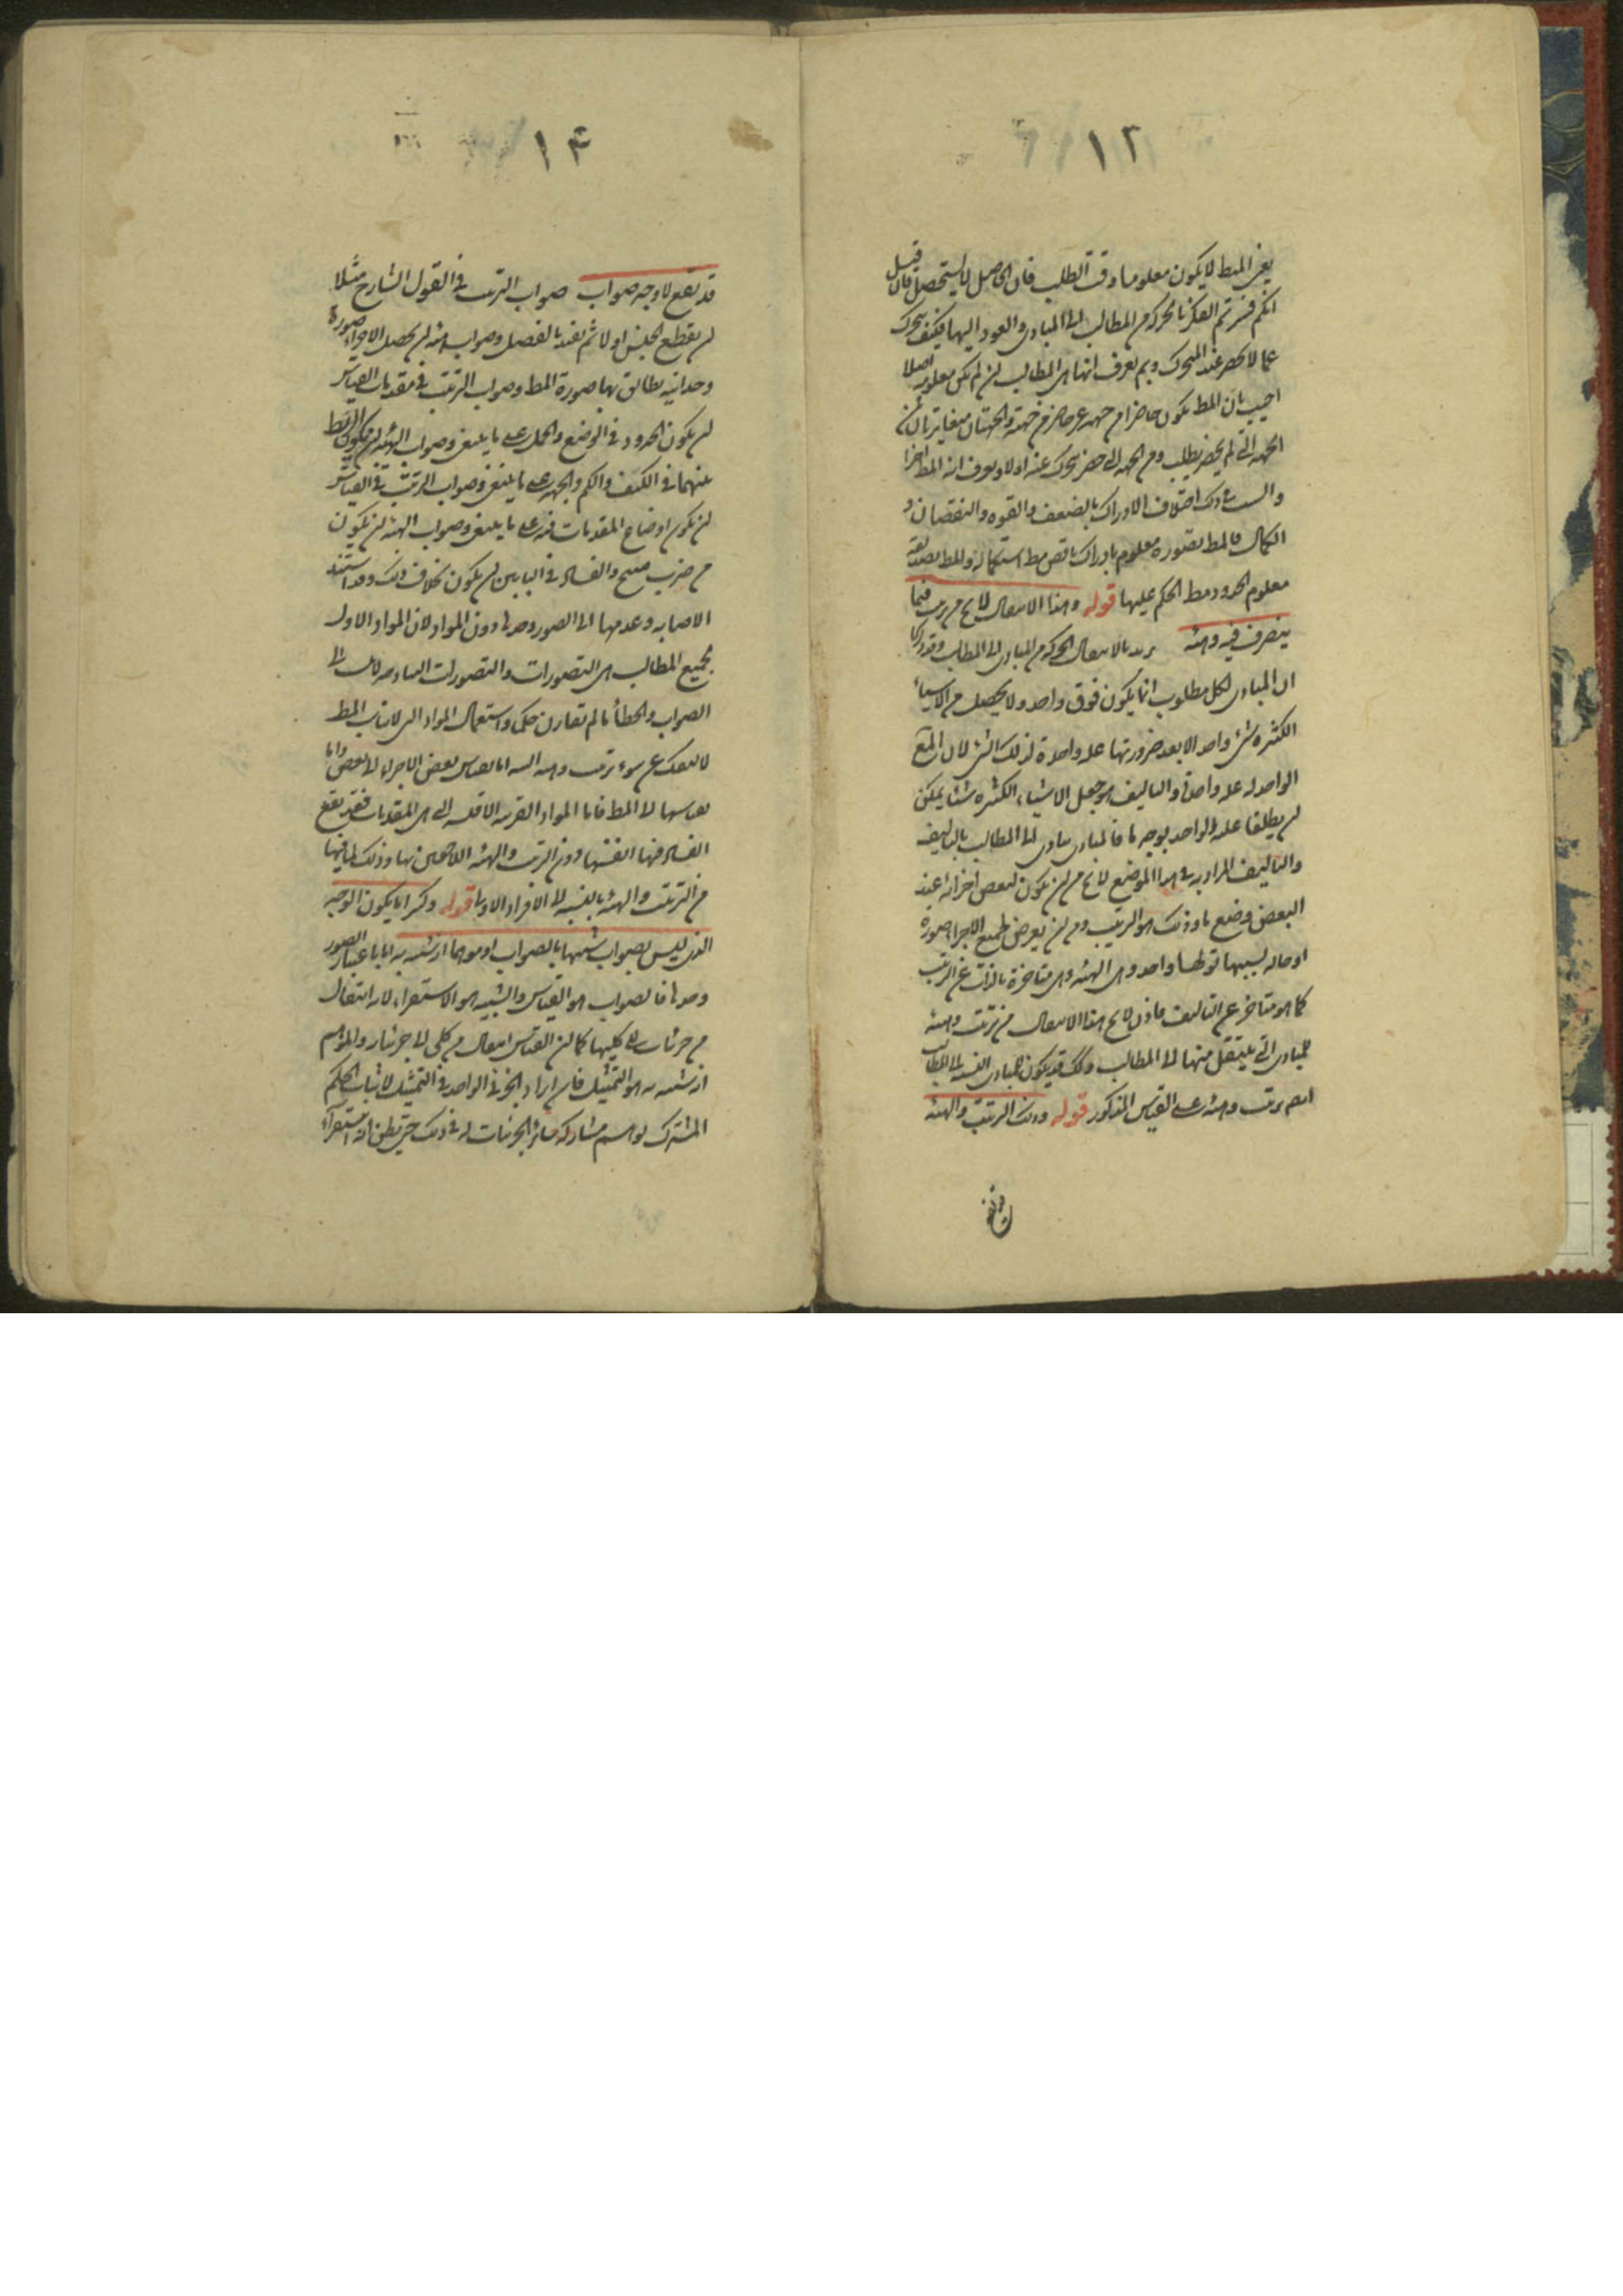 ١٣
يعنى المط لا يكون معلوما وقت الطلب فان الحاصل لا يستحصل فان قيل
انكم فسرتم الفكر بالحركة من المطالب الى المبادى والعود اليها فكيف يتحرك
عما لا يحضر عند المتحرك وبم يعرف انها هى المطالب لن لم يكن معلومه اصلا
اجيب بان المط يكون حاضرا من جهه غير حاضر من جهة والجهتان متغايرتان
الجهه التى لم يحضر يطلب ومن الجهه التى حضر يتحرك عنه اولا ويعرف انه المط اخرا
والسبب فى ذلك اختلاف الادراك بالضعف والقوه والنقصان و
الكمال فالمط تصوره معلوم بادراك ناقص مط استكماله والمط تصديقه
معلوم الحدود مط الحكم عليها قوله وهذا الانتقال لا يخ من ترتيب فيما
يتصرف فيه وهيئه يريد بالانتقال الحركه من المبادى الى المطالب وقد ذكرنا
ان المبادى لكل مطلوب انما يكون فوق واحد ولا يحصل من الاشياء
الكثيره شئ واحد الا بعد صيرورتها عله واحدة لذلك الشئ لان المع
الواحد له عله واحدة والتاليف هو جعل الاشياء الكثيره شيئا يمكن
لن يطلق عليه الواحد بوجه ما فالمبادى يتادى الى المطالب بالتاليف
والتاليف المراد به فى هذا الموضع لا يخ من لن يكون لبعض اجزائه عند
البعض وضع ما وذلك هو الترتيب ومن لن يعرض لجميع الاجزاء صورة
او حاله بسببها يقال لها واحد وهى الهيئه وهى متاخرة بالذات عن الترتيب
كما هو متاخر عن التاليف فاذن لا يخ هذا الانتقال من ترتيب وهيئه
للمبادى التى ينتقل منها الى المطالب وكذلك قد يكون للمبادى بالنسبه الى المطالب
ايضا ترتيب وهيئه على القياس المذكور قوله وذلك الترتيب والهيئه
١٤
قد يقع لا وجه صواب صواب الترتيب فى القول الشارح مثلا
لن يقطع الجنس اولا ثم يقيد بالفصل وصواب الهيئه لن يحصل للاجزاء صورة
وحدانيه يطابق بها صورة المط وصواب الترتيب فى مقدمات القياس
لن يكون الحدود فى الوضع والحمل على ما ينبغى وصواب الهيئه لن يكون الربط
بينهما فى الكيف والكم والجهه على ما ينبغى وصواب الترتيب فى القياس
لن يكون اوضاع المقدمات فيه على ما ينبغى وصواب الهيئه لن يكون
من ضرب منتج والفساد فى البابين لن يكون بخلاف ذلك وقد استند
الاصابه وعدمها الى الصور وحدها دون المواد لان المواد الاول
لجميع المطالب هى التصورات والتصورات الساذجه لا ينسب الى
الصواب والخطأ ما لم تقارن حكما واستعمال المواد التى لا يناسب المط
لا ينفك عن سوء ترتيب وهيئه البته اما بقياس بعض الاجزاء الى بعض واما
بقياسها الى المط فاما المواد القريبه الاقليه التى هى المقدمات فقد يقع
الفساد فيها انفسها دون الترتيب والهيئه اللاحقين بها وذلك لما فيها
من الترتيب والهيئه بالنسبه الى الافراد الاول قوله وكثيرا ما يكون الوجه
الذى ليس بصواب شبيها بالصواب او موهما انه شبيه به اما باعتبار الصور
وحدها فالصواب هو القياس والشبيه هو الاستقراء لانه انتقال
من جزئيات الى كليها كما لن القياس انتقال من كلى الى جزئياته والموهم
انه شبيه به هو التمثيل فان ايراد الجزئى الواحد فى التمثيل لاثبات الحكم
المشترك يوهم مشاركة سائر الجزئيات له فى ذلك حتى يظن انه استقراء